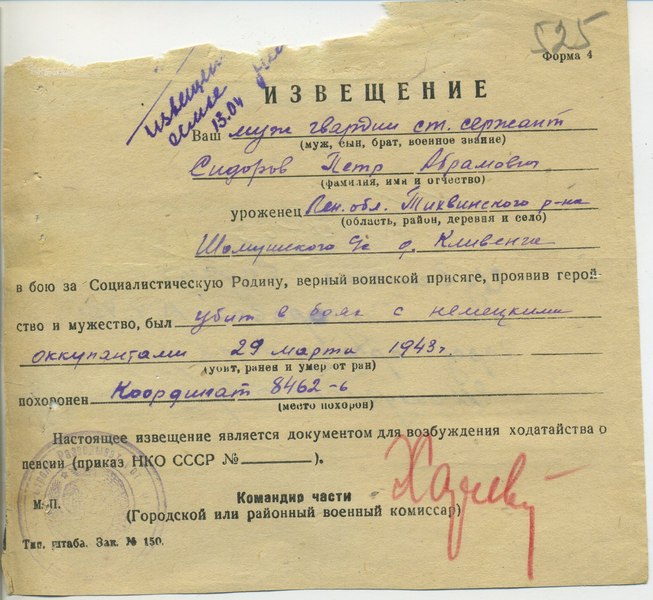 525
Форма 4
извещен
семье
13.04
ИЗВЕЩЕНИЕ
Ваш муж гвардии ст. сержант
(муж, сын, брат, военное звание)
Сидоров Петр Абрамович
(фамилия, имя и отчество)
уроженец Лен. обл. Тихвинского р-на
(область, район, деревня и село)
Шомушского с/с д. Кливенга
в бою за Социалистическую Родину, верный воинской присяге, проявив герой-
ство и мужество, был убит в боях с немецкими
оккупантами 29 марта 1943г.
(убит, ранен и умер от ран)
похоронен Координат 8462-б
(место похорон)
Настоящее извещение является документом для возбуждения ходатайства о
пенсии (приказ НКО СССР № ).
М. П.
Командир части
(Городской или районный военный комиссар)
Тип. штаба. Зак. № 150.